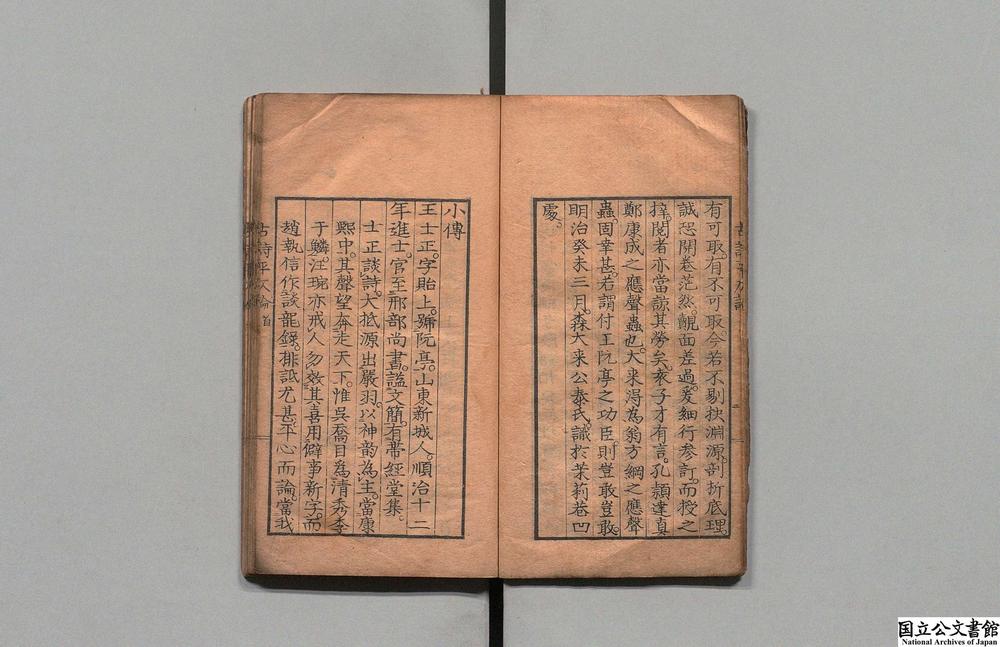 有可取。有不可取。今若不剔抉淵源。剖折底理。
誠恐開卷茫然。覿面差過。爰細行參訂。而授之
梓。閱者亦當諒其勞矣。袁子才有言。孔穎達真
鄭康成之應聲蟲也。大来淂為翁方綱之應聲
蟲。固幸甚。若謂付王阮亭之功臣。則豈敢豈敢。
明治癸未三月。森大来公泰氏。識於茉莉巷凹
處。
小傳
王士正。字貽上。號阮亭。山東新城人。順治十二
年進士。官至刑部尚書。諡文簡。有帶經堂集。
士正談詩。大抵源出嚴羽。以神韵為主。當康
熙中。其聲望奔走天下。惟吳喬目為清秀李
于鱗。汪琬亦戒人勿效其喜用僻事新字。而
趙執信作談龍錄。排詆尤甚。平心而論。當我
古詩平仄論 首
国立公文書館
National Archives of Japan